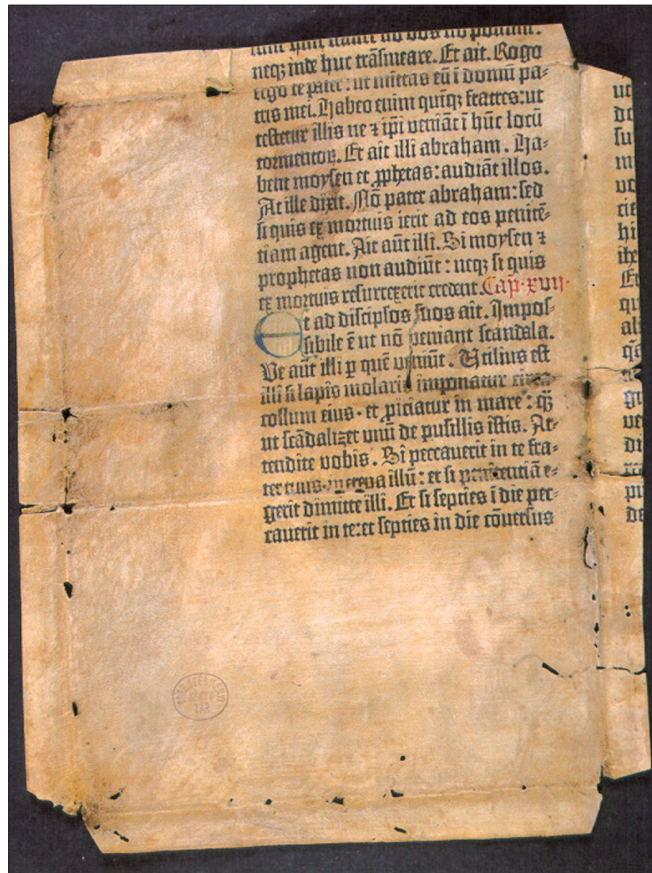 neqꝫ inde huc trãsmeare. Et ait. Rogo
ergo te pater: ut mittas eũ ĩ domũ pa-
tris mei. Habeo enim quinqꝫ fratres: ut
testetur illis ne ⁊ ip̃i veniãt ĩ hũc locũ
tormentoꝝ. Et ait illi abraham. Ha-
bent moysen et ꝓphetas: audiãt illos.
At ille dixit. Nõ pater abraham: sed
si quis ex mortuis ierit ad eos penitẽ-
tiam agent. Ait aũt illi. Si moysen ⁊
prophetas non audiũt: neqꝫ si quis
ex mortuis resurrexerit credent. Cap. xvii.
Et ad discip̃los suos ait. Impos-
sibile ẽ ut nõ veniant scandala.
Ve aũt illi ꝑ quẽ veniũt. Utilius est
illi si lapis molaris imponatur circa
collum eius. et ꝓiciatur in mare: qᷓꝫ
ut scãdalizet vnũ de pusillis istis. At-
tendite vobis. Si peccauerit in te fra-
ter tuus increpa illũ: et si penitentiã e-
gerit dimitte illi. Et si septies ĩ die pec-
cauerit in te: et septies in die cõuersus